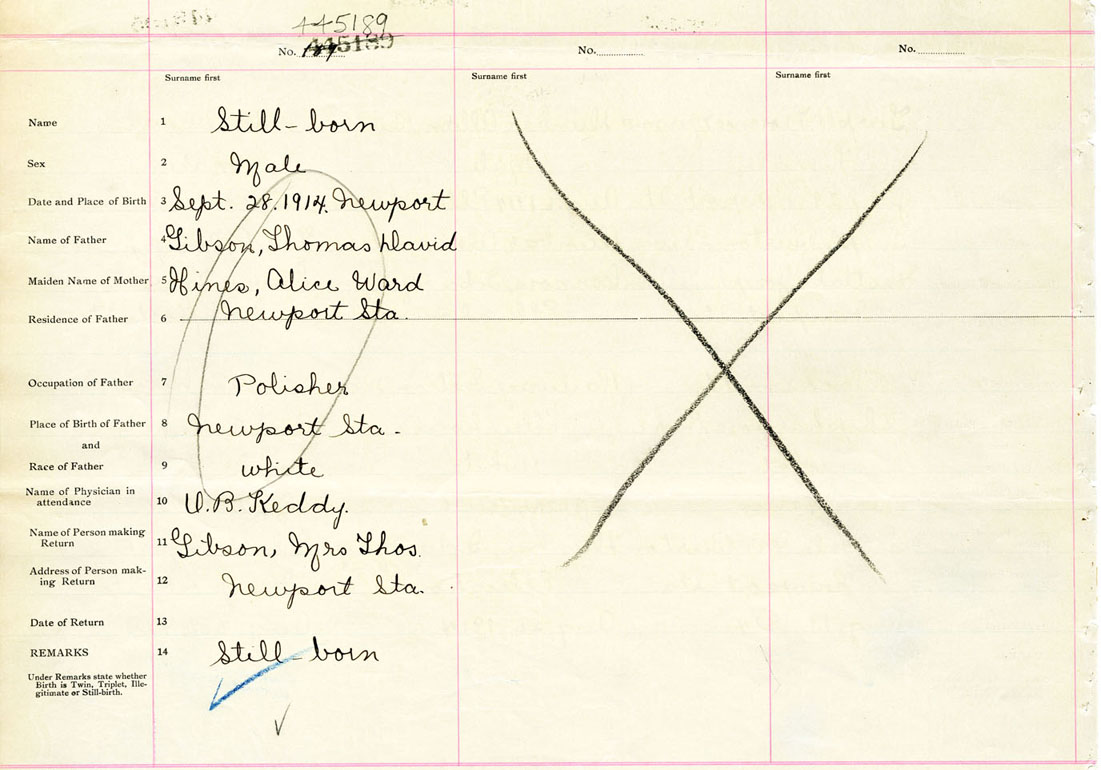 445189
No. 445189
No.
No.
Surname first
Surname first
Surname first
Name 1 Still-born
Sex 2 Male
Date and Place of Birth 3 Sept. 28. 1914. Newport
Name of Father 4 Gibson, Thomas David
Maiden Name of Mother 5 Hines, Alice Ward
Residence of Father 6 Newport Sta.
Occupation of Father 7 Polisher
Place of Birth of Father 8 Newport Sta -
and
Race of Father 9 white
Name of Physician in
attendance 10 W.B. Keddy.
Name of Person making
Return 11 Gibson, Mrs Thos.
Address of Person mak-
ing Return 12 Newport Sta.
Date of Return 13
REMARKS 14 Still-born
Under Remarks state whether
Birth is Twin, Triplet, Ille-
gitimate or Still-birth.